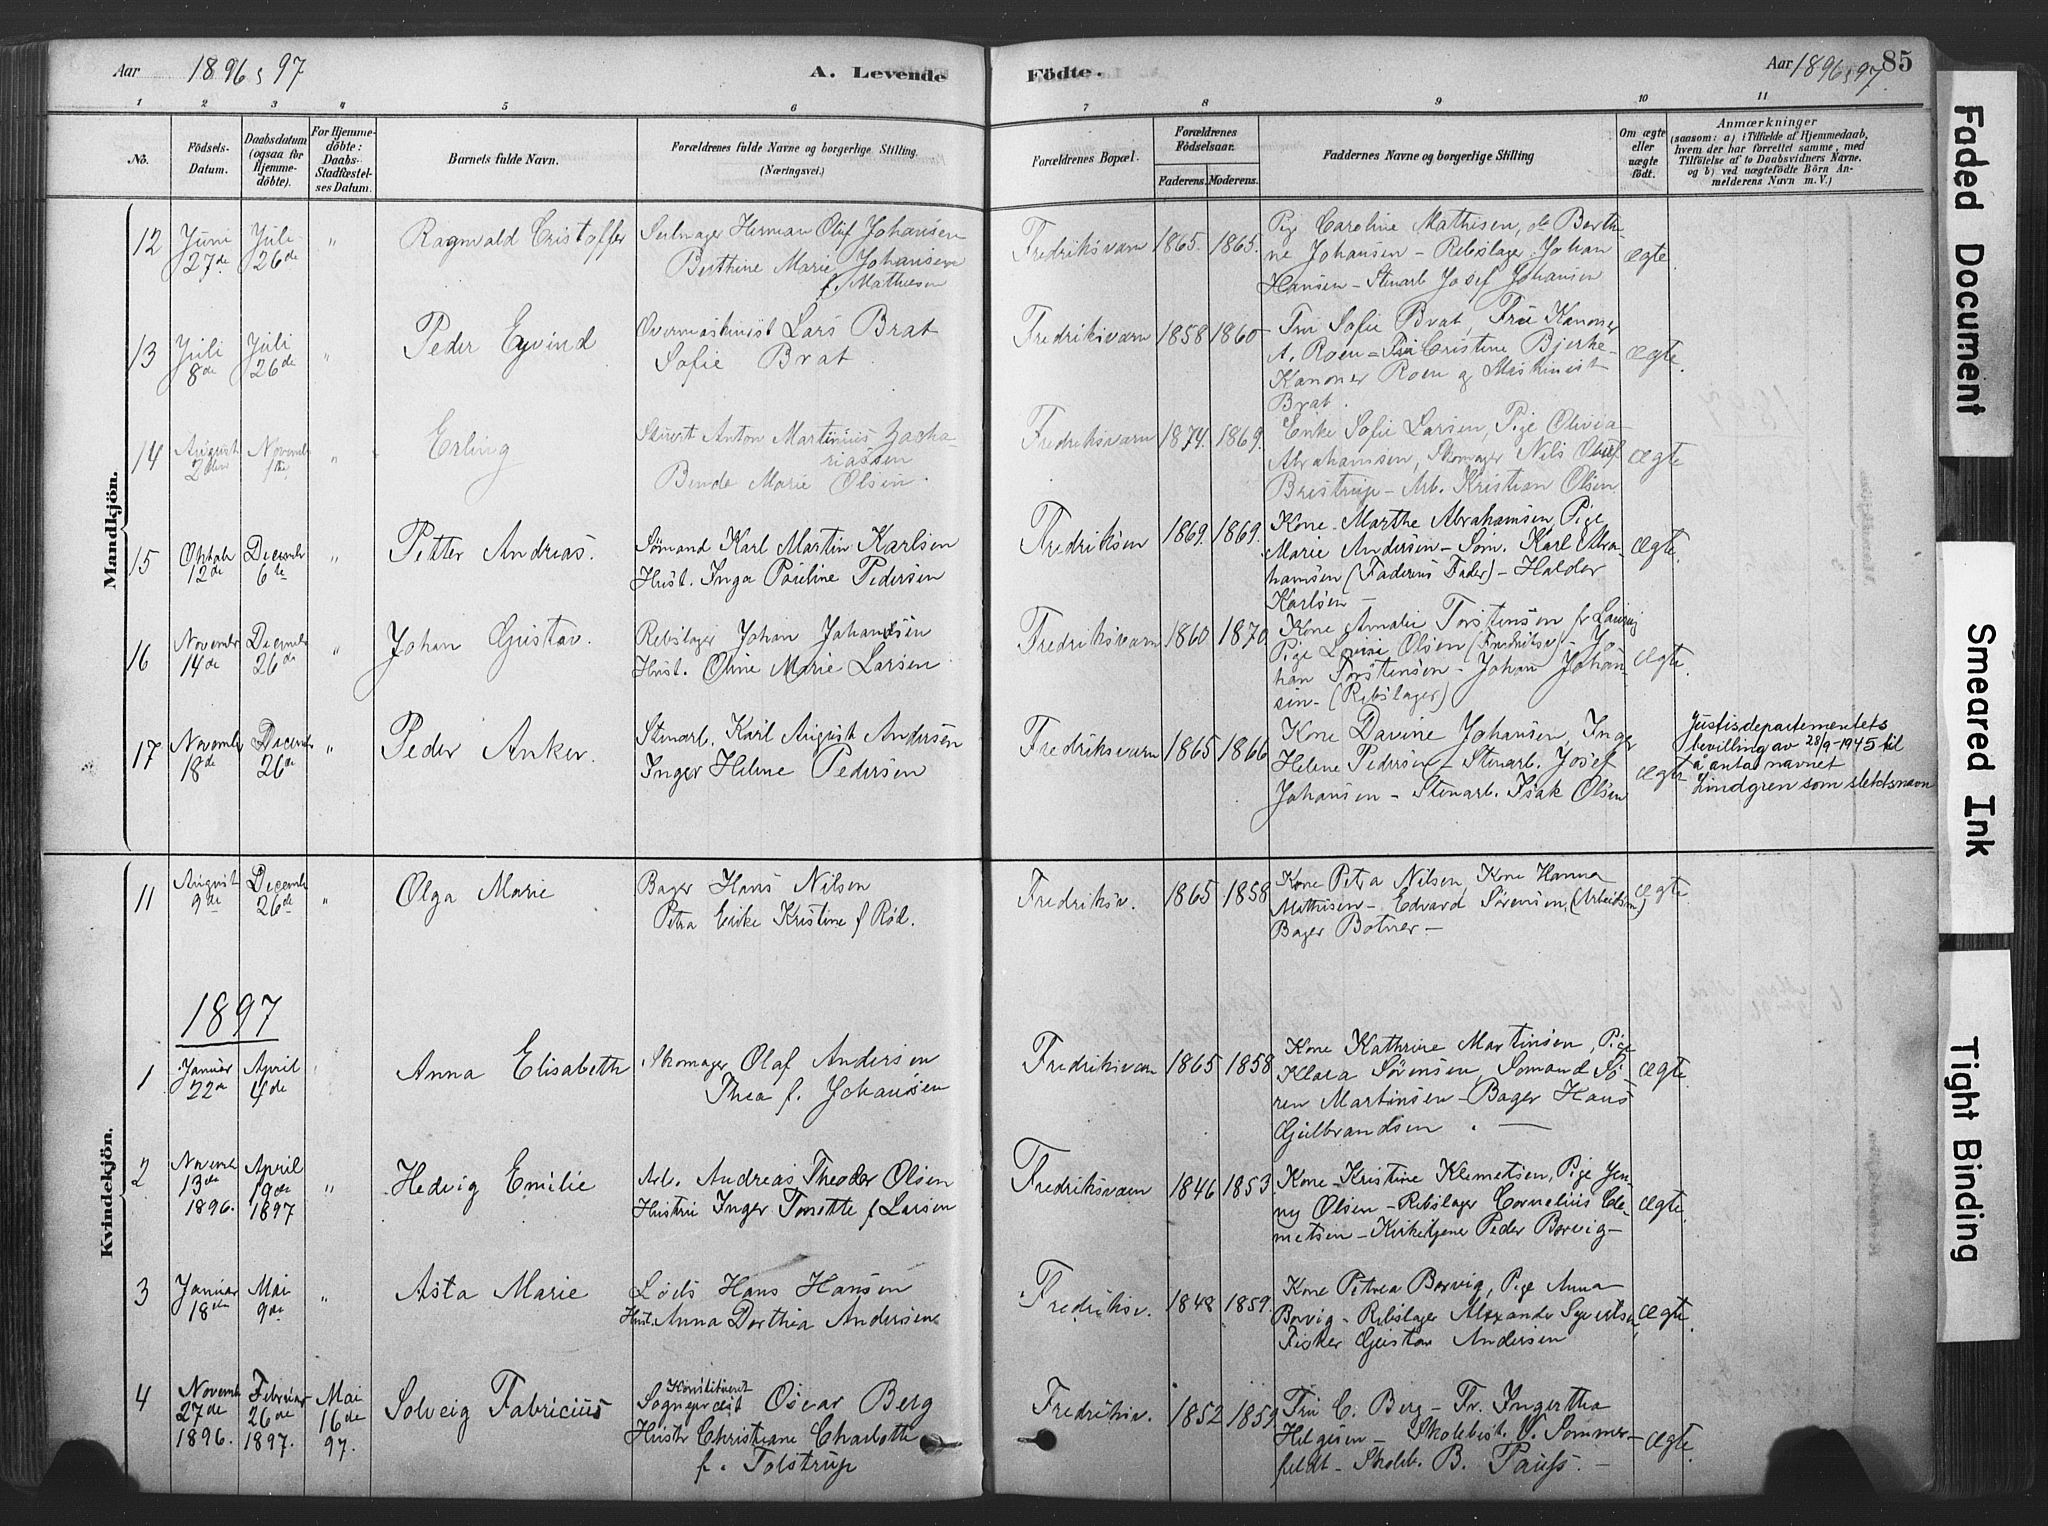 Aar 1896 & 97
A. Levende
Födte.
Aar 1896 & 97.
85
1 2 3 4 5 6 7 8 9 10 11
No.
Födsels-
Datum.
Daabsdatum
(ogsaa for
Hjemme-
döbte).
For Hjemme-
döbte:
Daabs-
Stadfæstel-
ses Datum.
Barnets fulde Navn.
Forældrenes fulde Navne og borgerlige Stilling
(Næringsvei.)
Forældrenes Bopæl.
Forældrenes
Födselsaar.
Faderens. Moderens.
Faddernes Navne og borgerlige Stilling
Om ægte
eller
uægte
födt.
Anmærkninger
(saasom: a) i Tilfælde af Hjemmedaab,
hvem der har forrettet samme, med
Tilföielse af to Daabsvidners Navne,
og b) ved uægtefödte Börn An-
melderens Navn m. V.)
Mandkjön.
12
Juni
27de
Juli
26de
"
Ragnvald Cristoffer
Seilmager Herman Oluf Johansen
Berthine Marie Johansen
f. Mathiesen
Fredriksværn
1865. 1865.
Pige Caroline Mathisen, do Berthi-
ne Johansen – Rebslager Johan
Hansen – Stenarb Josef Johansen
ægte.
13
Juli
8de
Juli
26de
"
Peder Eyvind
Overmaskinist Lars Brat
Sofie Brat
Fredriksværn
1858 1860
Fru Sofie Brat, Fru Kanoner
A. Roen – Fru Cristine Bjerke –
Kanoner Roen og Maskinist
Brat.
ægte.
14
August
2den
Novemb
1ste
"
Erling
Stuert Anton Martinius Zacha
riassen
Bende Marie Olsen.
Fredriksværn
1874. 1869.
Enke Sofie Larsen, Pige Olivia
Abrahamsen, Skomager Nils Oluf
Bristrup – Arb. Kristian Olsen
ægte
15
Oktob
12de
Decembr
6te
"
Petter Andreas.
Sömand Karl Martin Karlsen
Hust. Inga Pauline Pedersen
Fredriksvn
1869. 1869.
Kone Marthe Abrahamsen, Pige
Marie Andersen – Söm. Karl Abra
hamsen (Faderens Fader) – Halder
Karlsen –
ægte.
16
Novembr
14de
Decembr
26de
"
Johan Gustav.
Rebslager Johan Johansen
Hust. Oline Marie Larsen
Fredriksværn
1860 1870.
Kone Amalie Torstensen fr Laurvig
Pige Lovise Olsen (Fredriksv) – Jo-
han Torstensen – Johan Johan-
sen – (Rebslager)
ægte.
17
Novembr
18de
Decembr
26de
"
Peder Anker.
Stenarb. Karl August Andersen
Inger Helene Pedersen
Fredriksværn
1865 1866
Kone Davine Johansen, Inger
Helene Pedersen – Stenarb. Josef
Johansen – Stenarb. Isak Olsen
ægte
Justisdepartementets
bevilling av 28/9-1945 til
å anta navnet
Lindgren som slektsnavn
Kvindekjön.
11
August
9de
Decembr
26de
"
Olga Marie
Bager Hans Nilsen
Petra Enike Kristine f Röd.
Fredriksv.
1865 1858
Kone Petra Nilsen, Kone Hanna
Mathisen – Edvard Sörensen, (Arbeidsm)
Bager Botner –
ægte.
1897
1
Januar
22de
April
4de
Anna Elisabeth
Skomager Olaf Andersen
Thea f. Johansen
Fredriksværn
1865 1858
Kone Kathrine Martinsen, Pige
Klara Sörensen, Sömand Sö
ren Martinsen – Bager Hans
Gulbrandsen. –
ægte.
2
Novemb
13de
1896.
April
19de
1897
"
Hedvig Emilie
Arb. Andreas Theodor Olsen
Hustru Inger Tonette f Larsen
Fredriksværn
1846 1853
Kone Kristine Klemetsen, Pige Jen-
ny Olsen – Rebslager Cornelius Cle-
metsen – Kirketjener Peder Borvig –
ægte.
3
Januar
18de
Mai
9de
"
Asta Marie
Lods Hans Hansen
Hust. Anna Dorthea Andersen
Fredriksv.
1848 1859.
Kone Petrea Borvig, Pige Anna
Borvig – Rebslager Alexander Syvertsen
Fisker Gustav Andersen
ægte.
4
Novemb
27de
1896.
Februar
26de
1897.
Mai
16de
97.
Solveig Fabricius
Konstitueret
Sogneprest Oscar Berg
Hustr Christiane Charlotte
f. Tolstrup
Fredriksv.
1852 1859
Fru C. Berg – Fr. Ingertha
Helgesen – Skolebest. V. Sommer-
feldt – Skoleb. B. Pauss. –
ægte.
Faded Document
Smeared Ink
Tight Binding